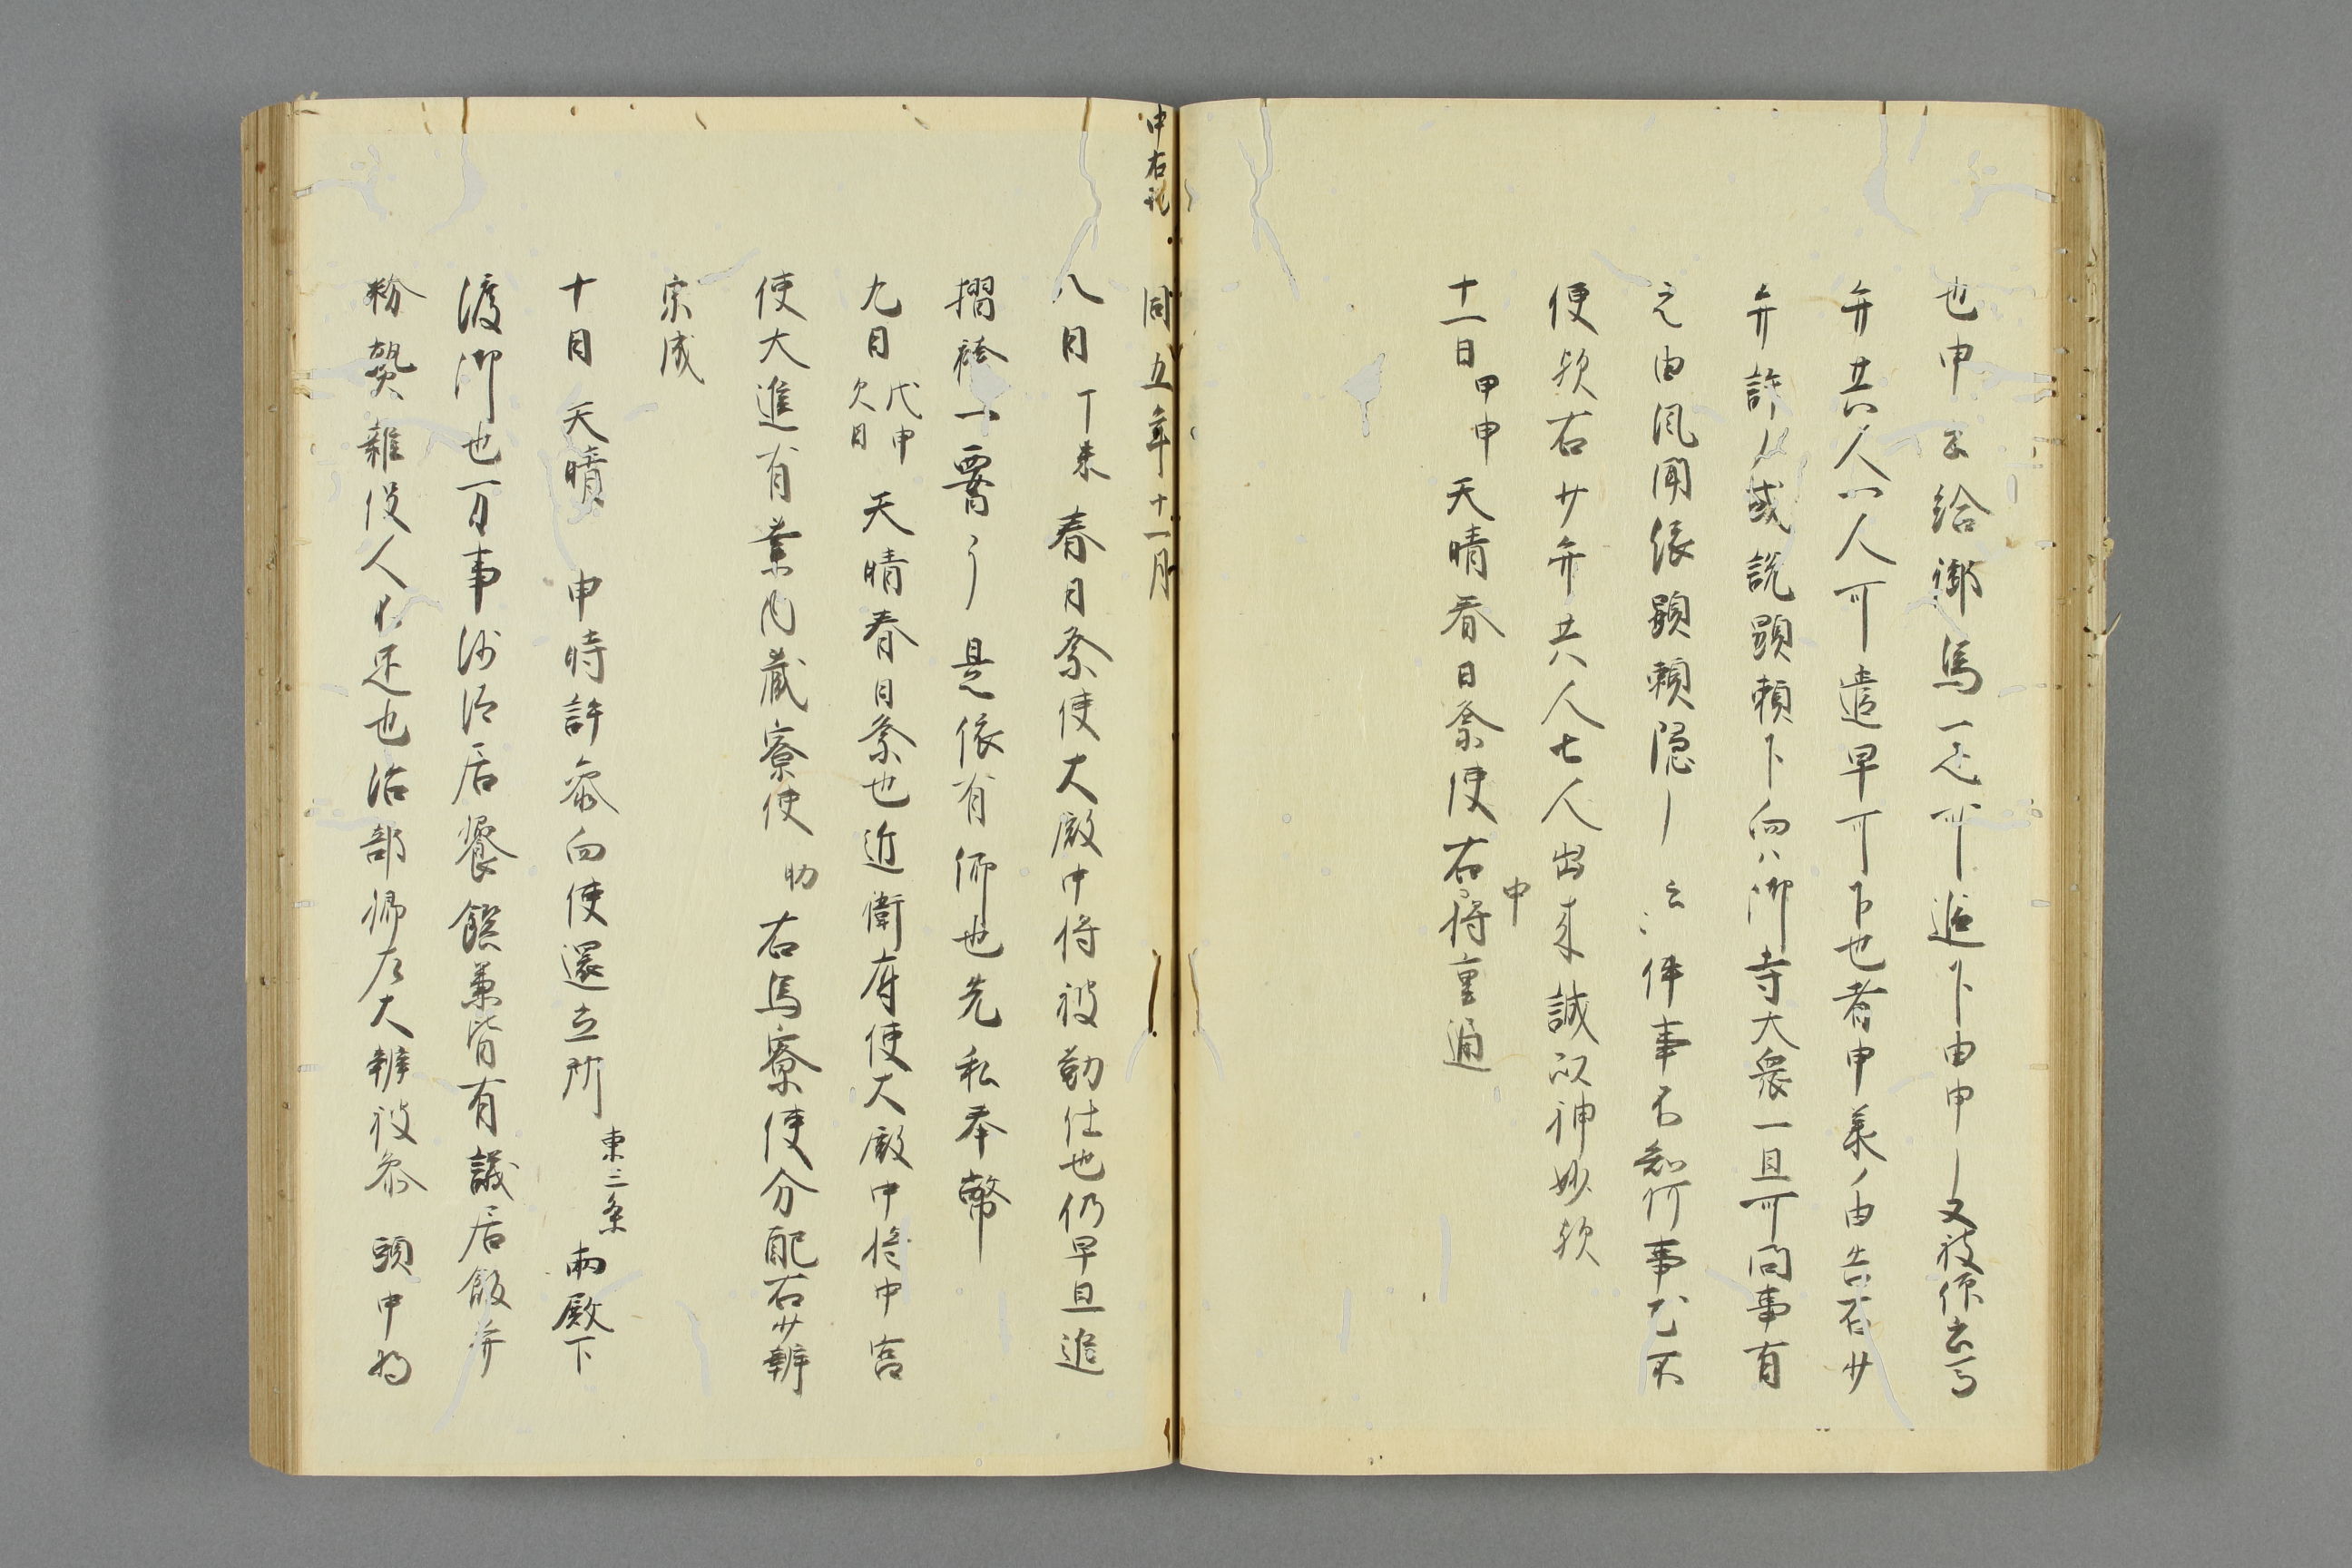 也申云給御馬一疋可追下由申了又被仰云右
弁共人六人可遣早可下也者申承了由告右少
弁許了或説顕頼下向御寺大衆一旦可問事有
之由風聞依顕頼隠了云々件事不知何事尤不
便歟右少弁共人七人出来誠以神妙歟
十一日甲申天晴春日祭使右中将重通
中右記
同五年十一月
八日丁未春日祭使大殿中将被勤仕也仍早旦進
摺袴一腰了是依有仰也先私奉幣
九日戊申欠日天晴春日祭也近衛府使大殿中将中宮
使大進有業内蔵寮使助右馬寮使分配右少辨
宗成
十日天晴申時許参向使還立所東三条両殿下
渡御也万事沙汰居饗饌兼皆有議居飯并
粉熟雜役人不足也治部卿左大辨被参頭中将